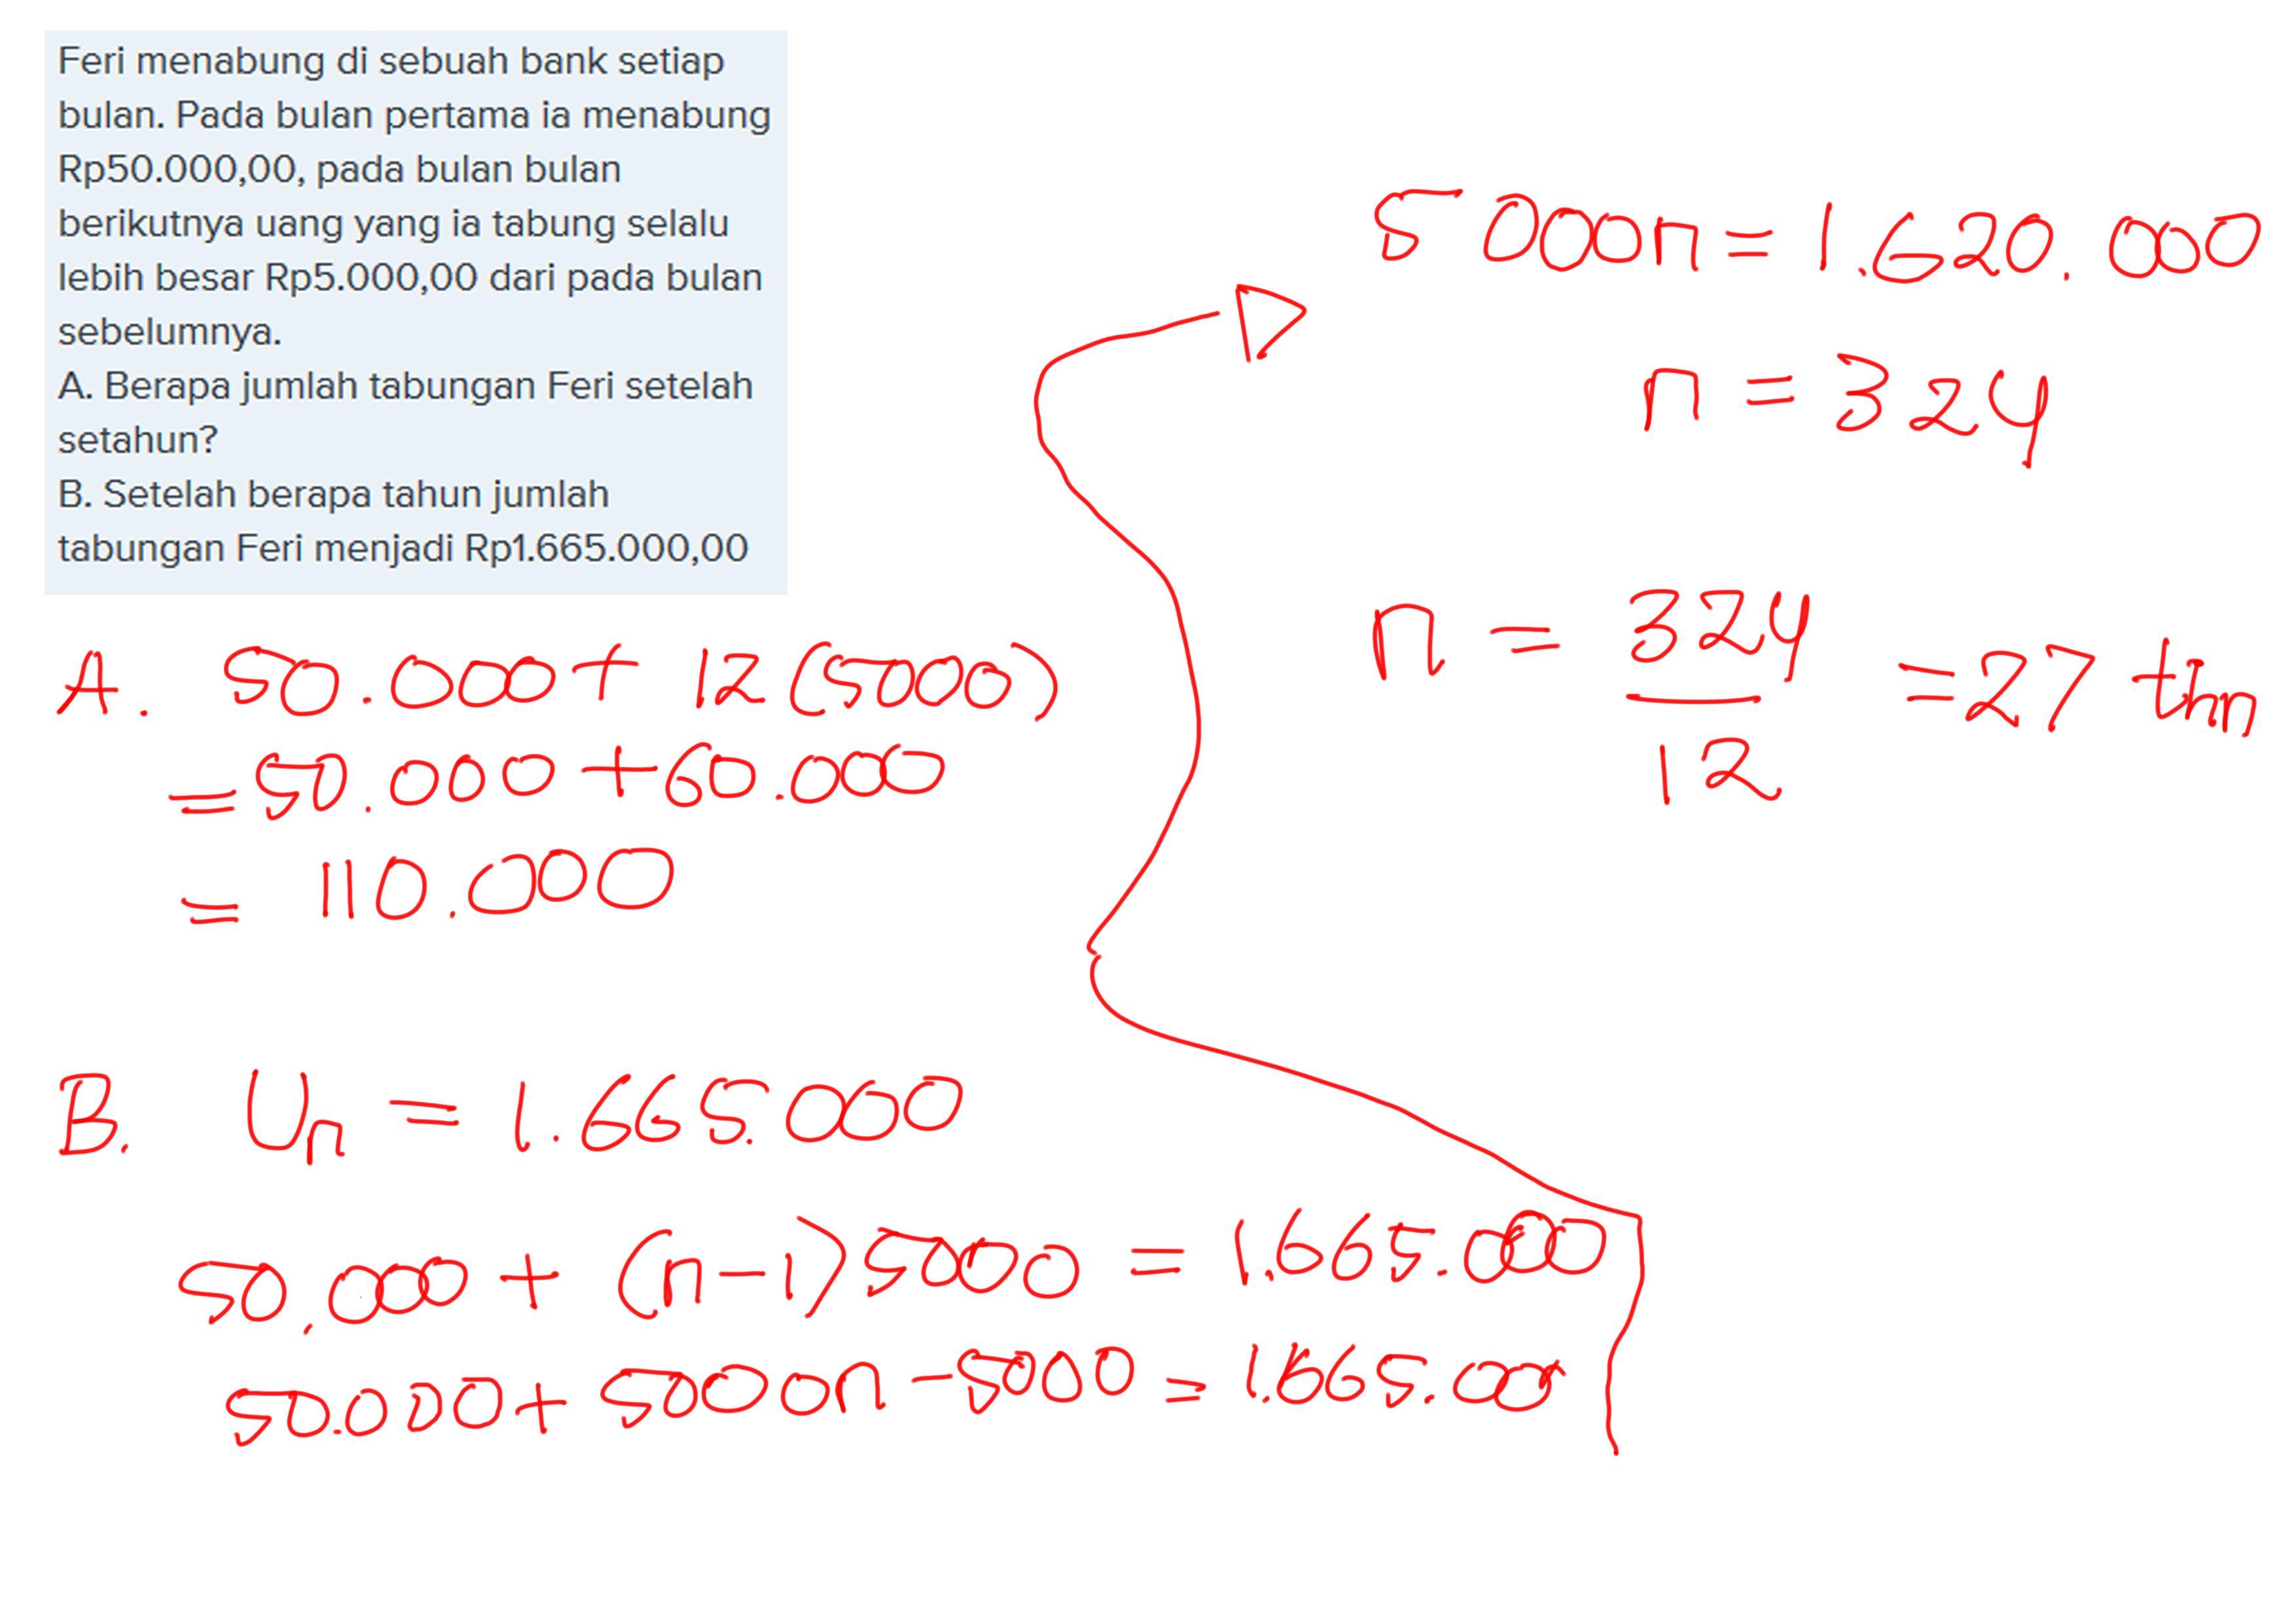 Feri menabung di sebuah bank setiap
bulan. Pada bulan pertama ia menabung
Rp50.000,00, pada bulan bulan
berikutnya uang yang ia tabung selalu
lebih besar Rp5.000,00 dari pada bulan
sebelumnya.
A. Berapa jumlah tabungan Feri setelah
setahun?
B. Setelah berapa tahun jumlah
tabungan Feri menjadi Rp1.665.000,00
A. 50.000 + 12 (5000)
= 50.000 + 60.000
= 110.000
B. Un = 1.665.000
50.000 + (n-1) 5000 = 1.665.000
50.000 + 5000n - 5000 = 1.665.000
5000n = 1.620.000
n = 324
n = 324/12 = 27 thn